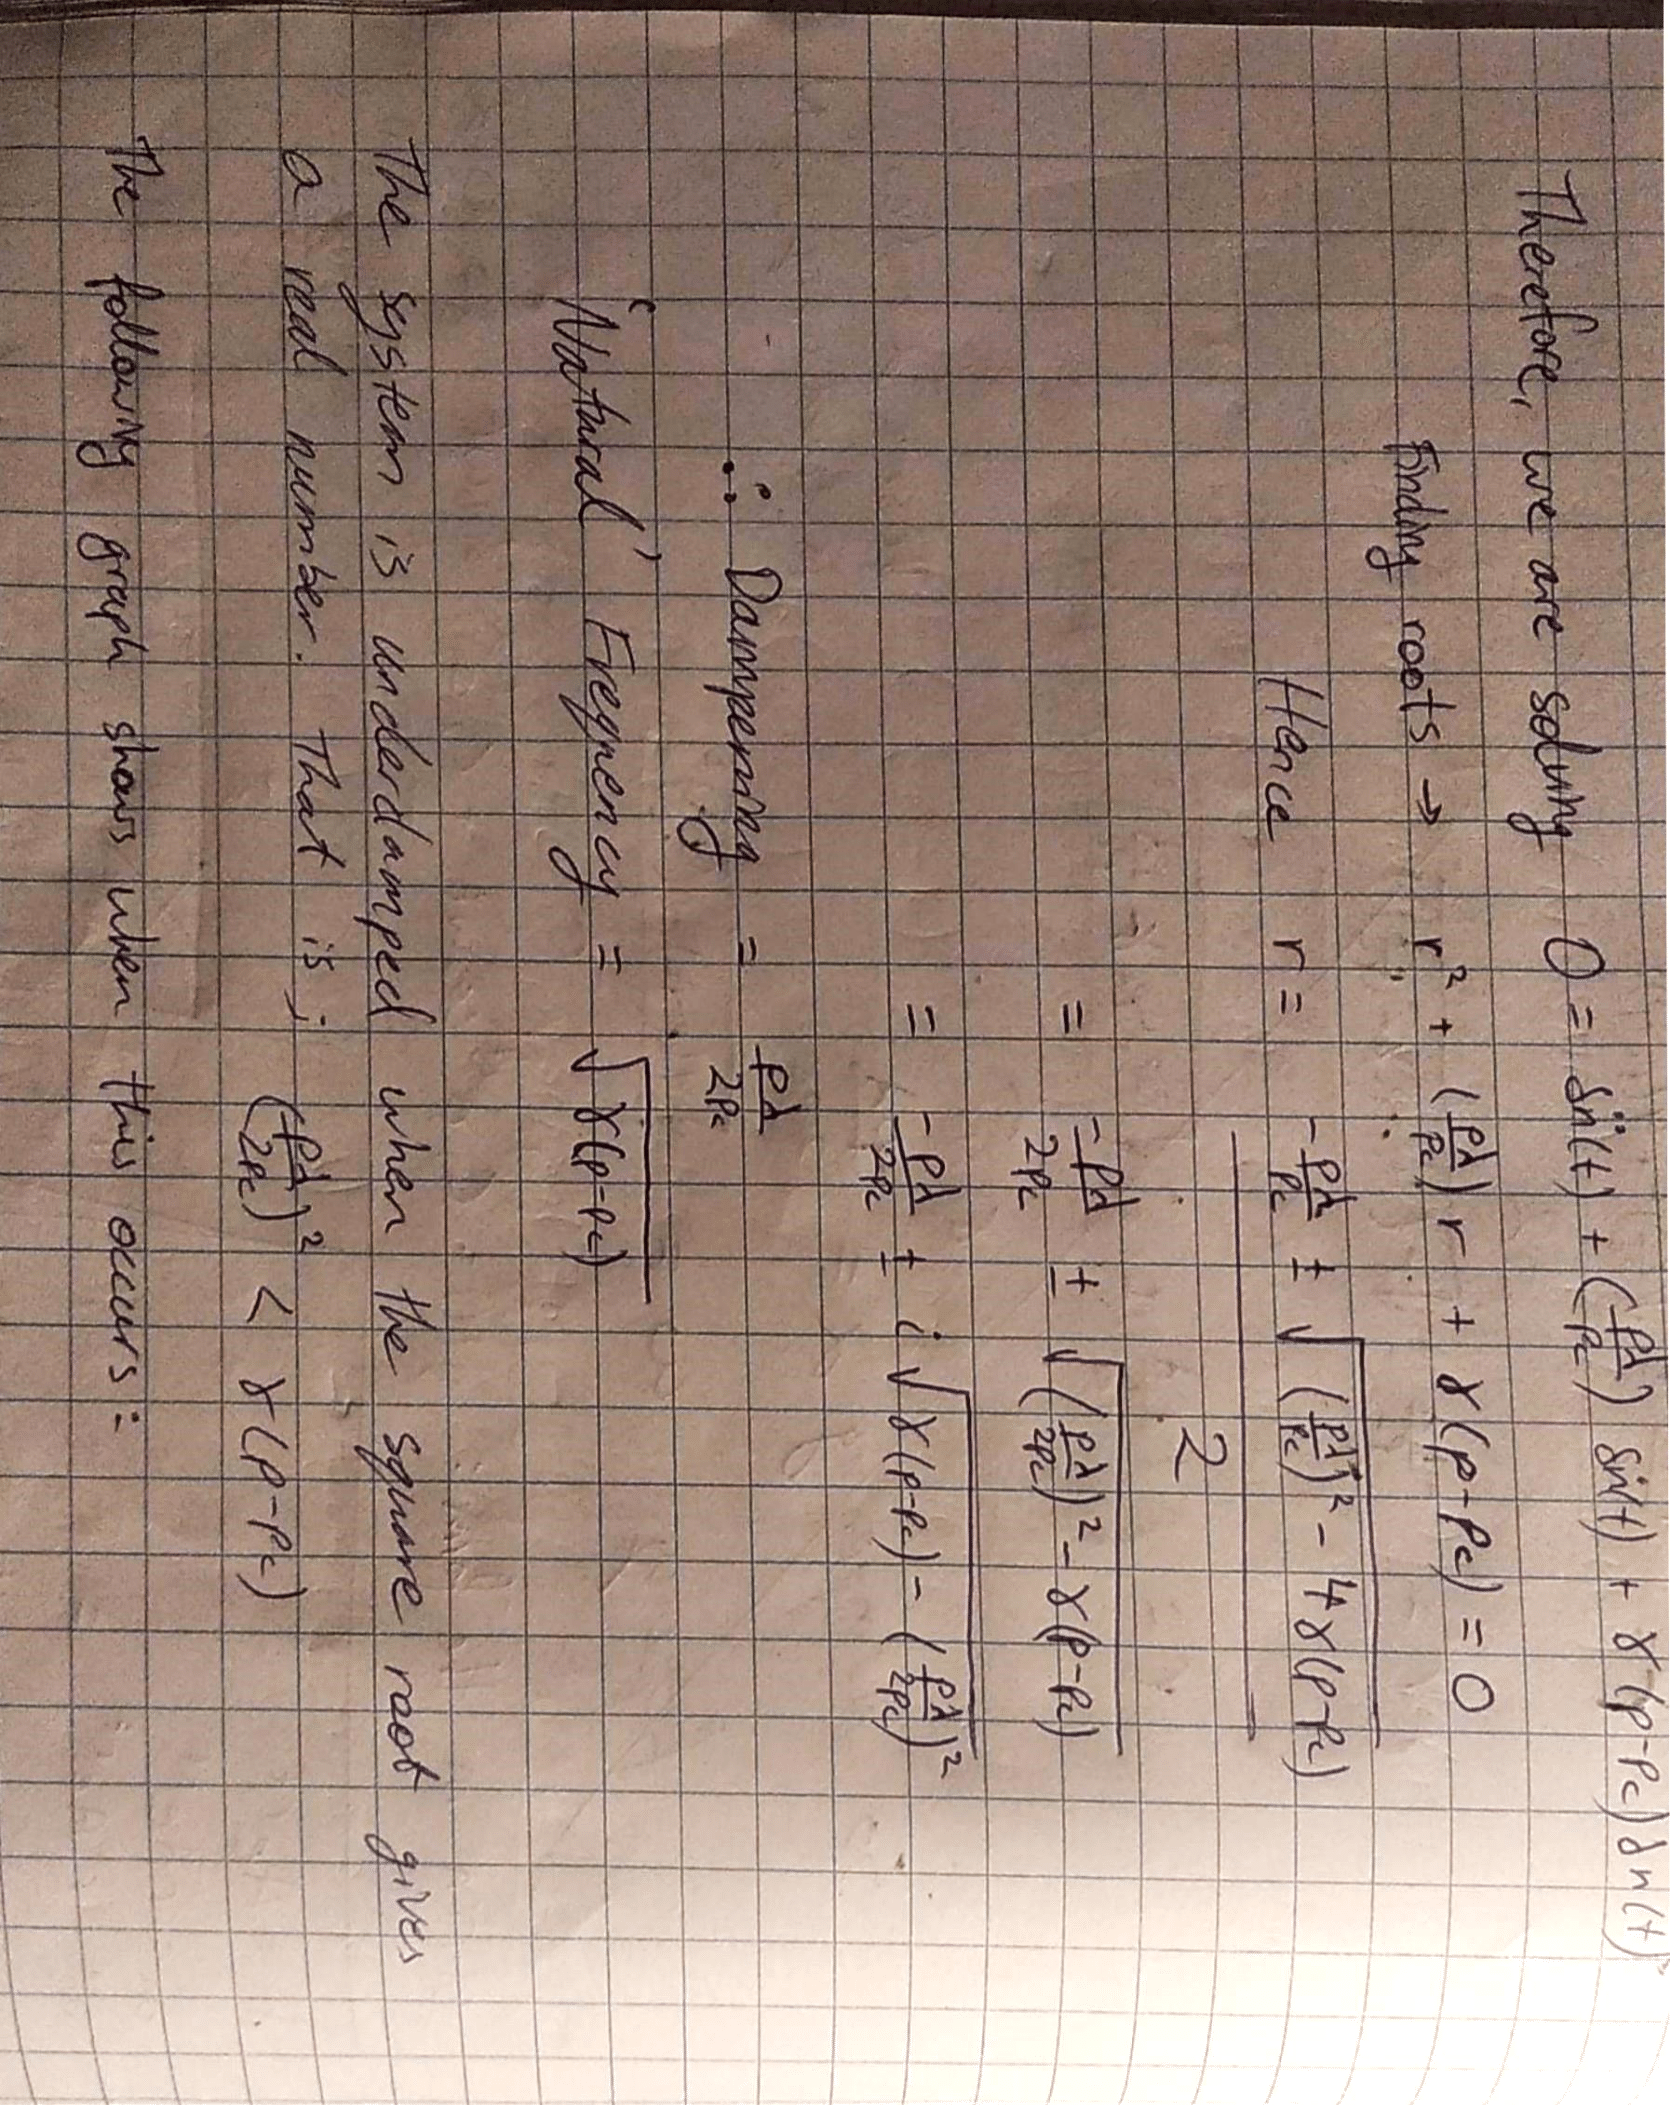 Therefore, we are solving 0 = δn̈(t) + (pλ/Pc) δṅ(t) + γ(p-Pc)δn(t)
Finding roots → r² + (pλ/Pc) r + γ(p-Pc) = 0
Hence r = (-pλ/Pc ± √((pλ/Pc)² - 4γ(p-Pc))) / 2
= -pλ/2Pc ± √((pλ/2Pc)² - γ(p-Pc))
= -pλ/2Pc ± i√(γ(p-Pc) - (pλ/2Pc)²)
∴ Dampening = pλ/2Pc
'Natural' Freqnency = √(γ(p-Pc))
The system is underdamped when the square root gives
a real number. That is; (pλ/2Pc)² < γ(p-Pc)
The following graph shows when this occurs: